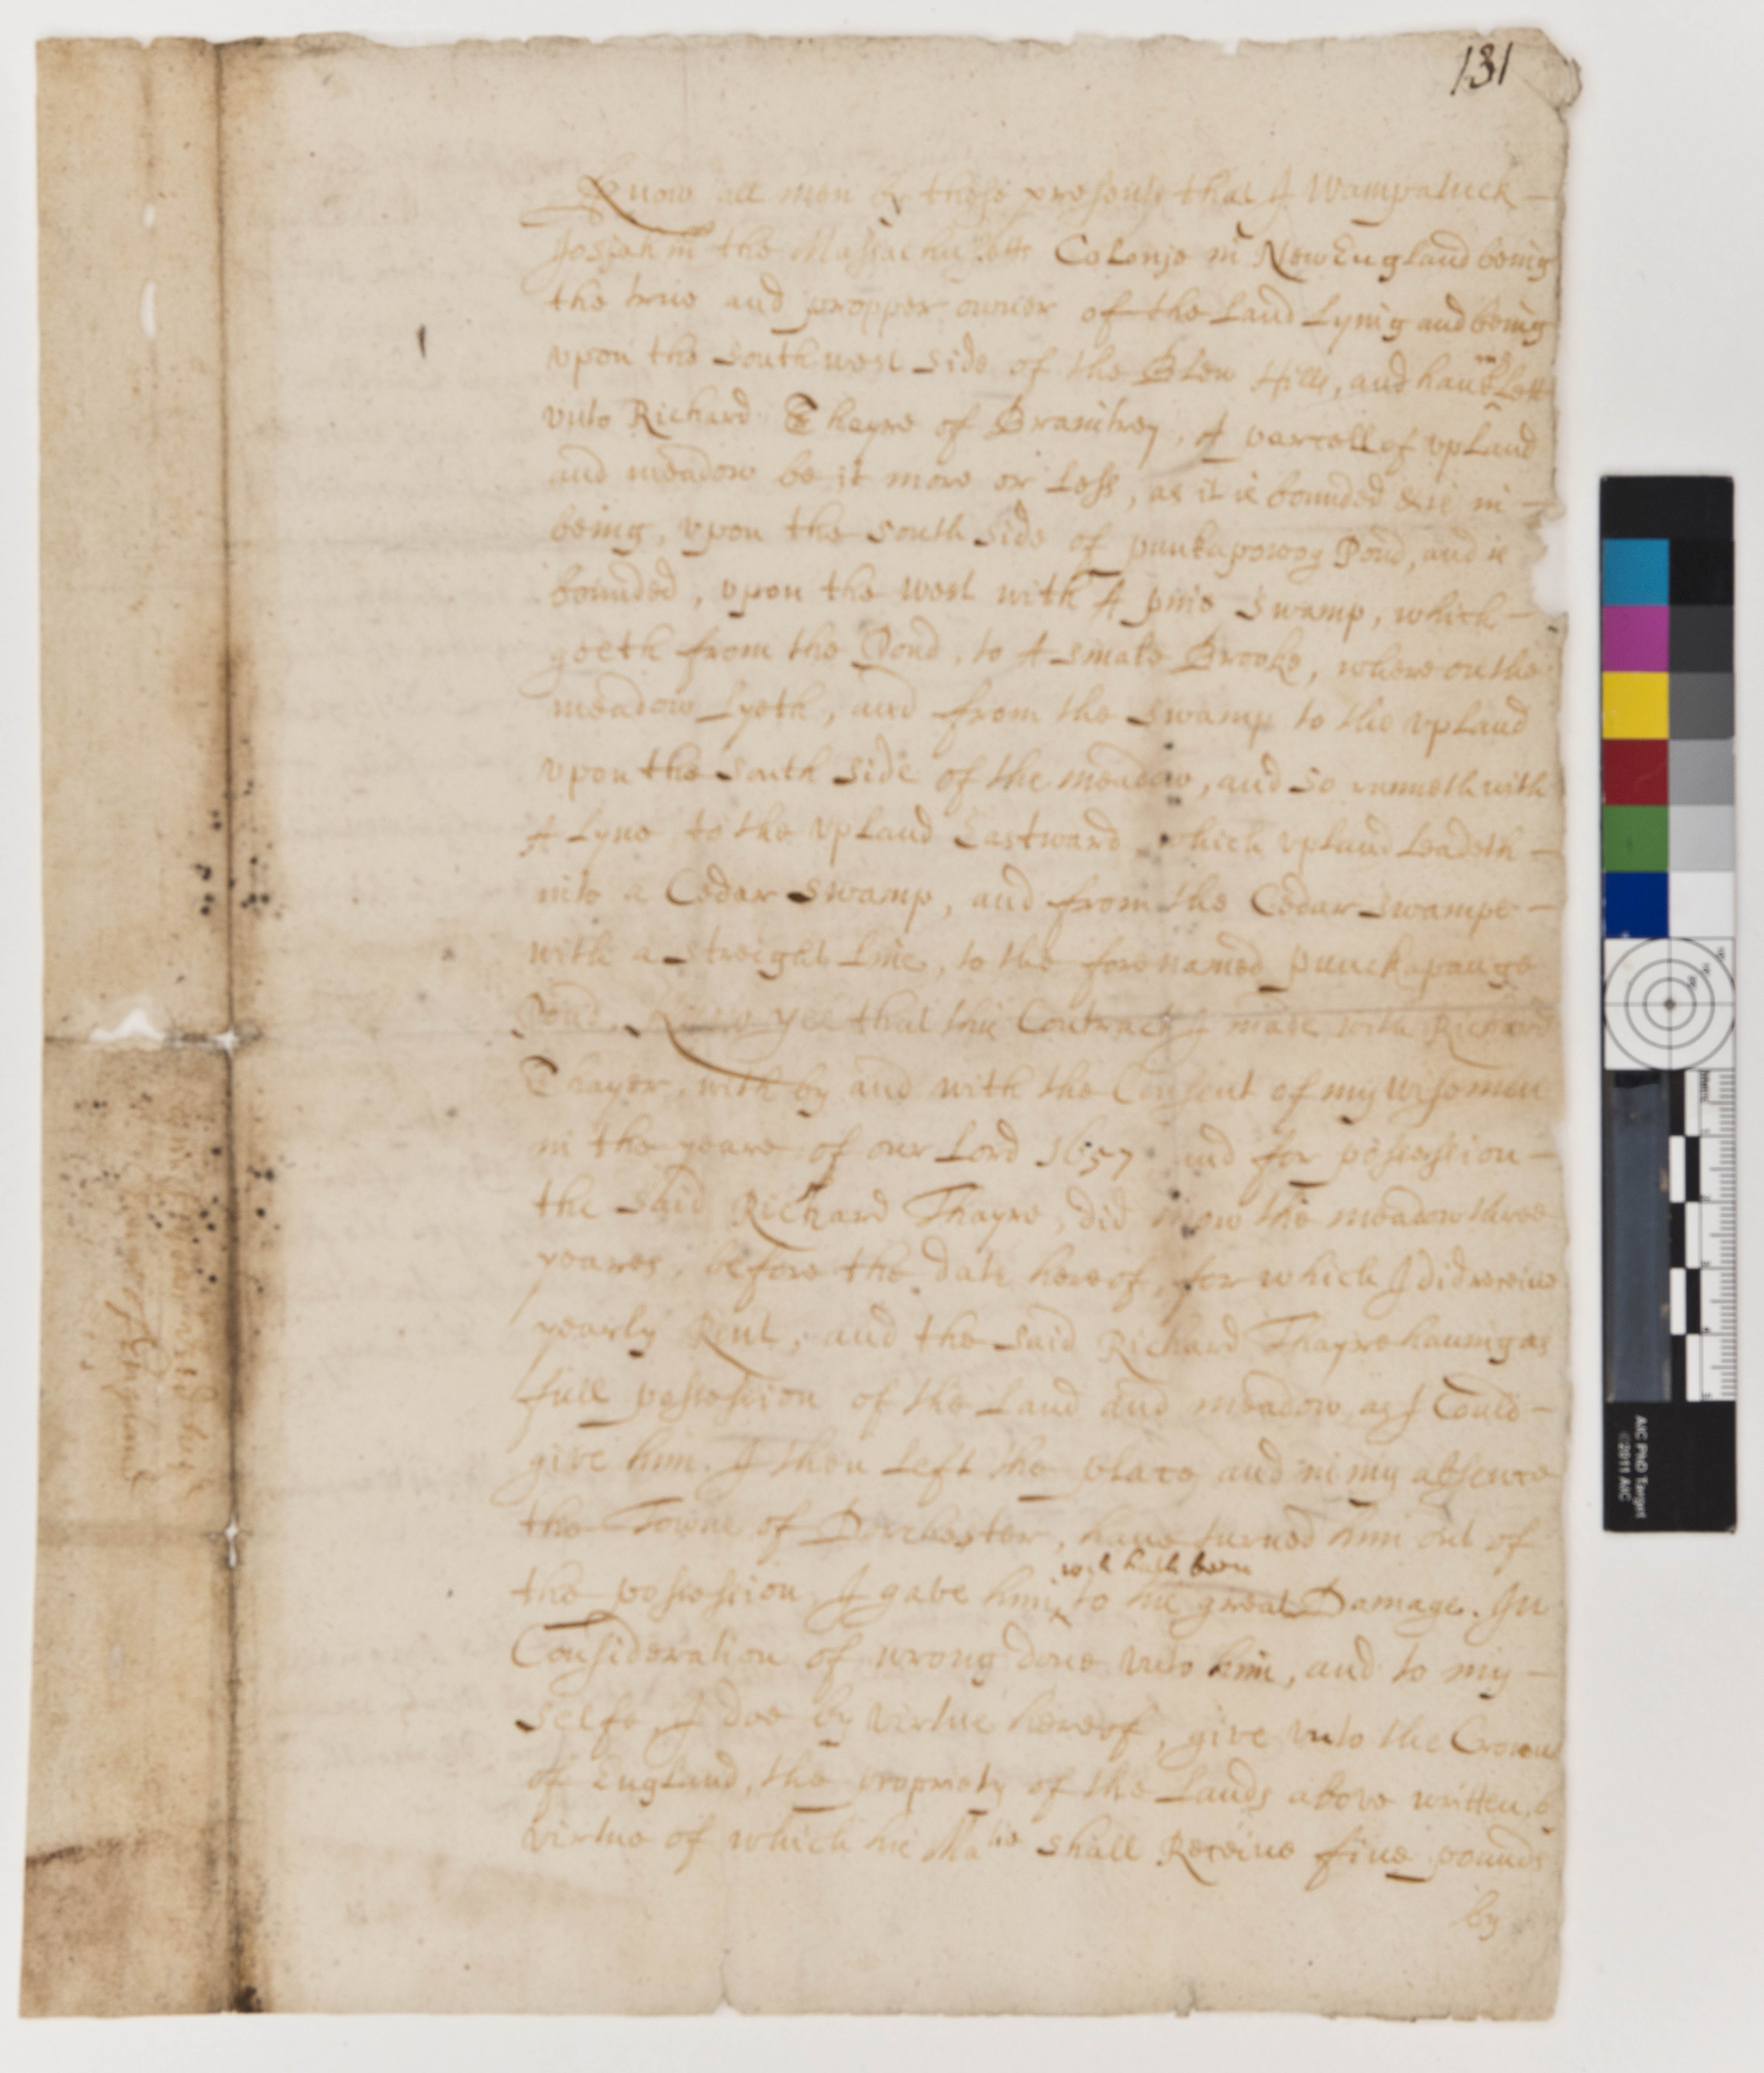 131
Know all men by these presents that I Wampatuck -
Josiah in the Massachusetts Colonie in New England being
the true and propper owner of the Land Lying and being
upon the southwest side of the Blew Hills, and haue Lett
unto Richard Thayre of Braintrey, A parcell of upLand
and meadow be it more or Less, as it is bounded & is in -
being, upon the south side of punkapowog Pond, and is
bounded, upon the west with A pine Swamp, which -
goeth from the Pond, to A smale Brooke, where on the
meadow Lyeth, and from the swamp to the upLand
upon the south side of the meadow, and so runneth with
A Lyne to the upLand Eastward which upLand Leadeth -
into a Cedar swamp, and from the Cedar swampe -
with a streight Line, to the forenamed punckapauge
Pond. Know yee that this Contract I made with Richard
Thayer, with by and with the Consent of my wisemen
in the yeare of our Lord 1657 and for possession -
the said Richard Thayre, did mow the meadow three
yeares, before the date hereof, for which I did receiue
yearly Rent, and the said Richard Thayre hauing as
full possession of the Land and meadow as I Could -
give him. I then Left the place and in my absence
the Towne of Dorchester, haue turned him out of
wch hath been
the possession I gave him, to his great Damage. In
Consideration of wrong done unto him, and to my -
selfe, I doe by virtue hereof, give unto the Crowne
of England, the propriety of the Lands above written,
virtue of which his Matie shall Receive five pounds
by
England